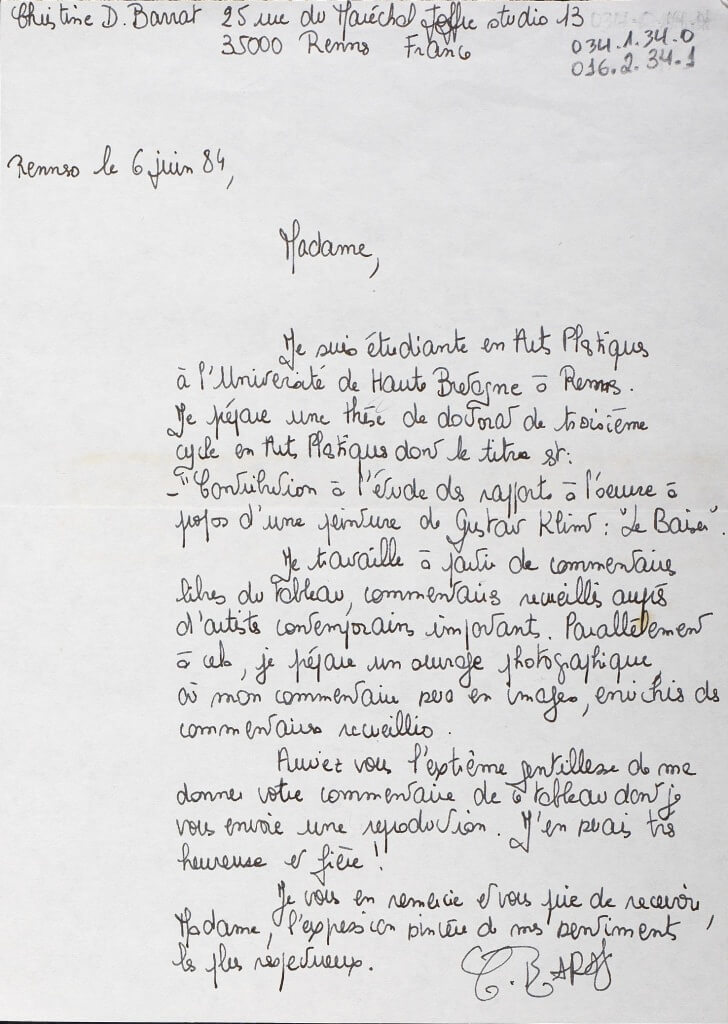 Christine D. Barrat 25 rue du Maréchal Joffre studio 13
35000 Rennes France
034.1.34.0
016.2.34.1
Rennes le 6 juin 84,
Madame,
Je suis étudiante en Arts Plastiques
à l'Université de Haute Bretagne à Rennes.
Je prépare une thèse de doctorat de troisième
cycle en Arts Plastiques dont le titre est:
- "Contribution à l'étude des rapports à l'oeuvre à
propos d'une peinture de Gustav Klimt : "Le Baiser".
Je travaille à partir de commentaires
libres du tableau, commentaires recueillis auprès
d'artistes contemporains importants. Parallèlement
à cela, je prépare un ouvrage photographique,
où mon commentaire sera en images, enrichis des
commentaires recueillis.
Auriez vous l'extrême gentillesse de me
donner votre commentaire de ce tableau dont je
vous envoie une reproduction. J'en serais très
heureuse et fière !
Je vous en remercie et vous prie de recevoir,
Madame, l'expression sincère de mes sentiments
les plus respectueux.